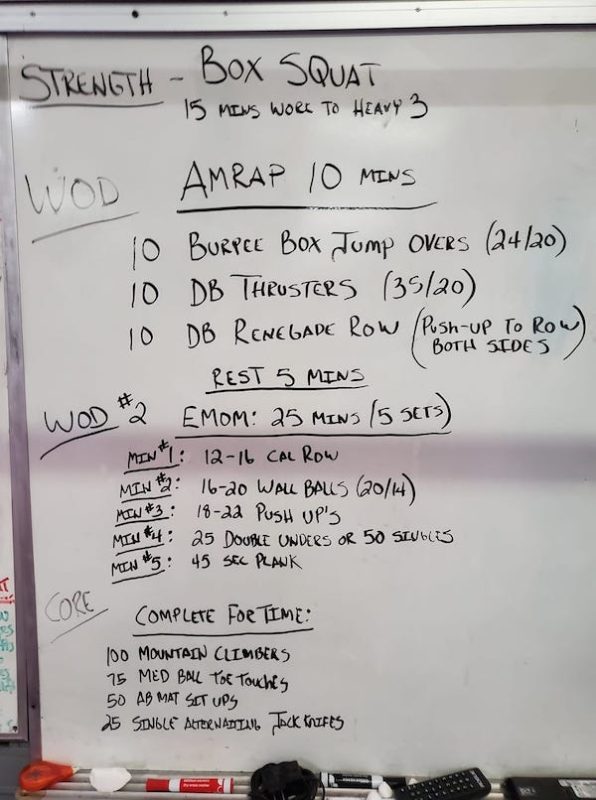 STRENGTH - BOX SQUAT
15 MINS WORK TO HEAVY 3
WOD AMRAP 10 MINS
10 BURPEE BOX JUMP OVERS (24/20)
10 DB THRUSTERS (35/20)
10 DB RENEGADE ROW (PUSH-UP TO ROW
BOTH SIDES)
REST 5 MINS
WOD #2 EMOM: 25 MINS (5 SETS)
MIN #1: 12-16 CAL ROW
MIN #2: 16-20 WALL BALLS (20/14)
MIN #3: 18-22 PUSH UP'S
MIN #4: 25 DOUBLE UNDERS OR 50 SINGLES
MIN #5: 45 SEC PLANK
CORE
COMPLETE FOR TIME:
100 MOUNTAIN CLIMBERS
75 MED BALL TOE TOUCHES
50 AB MAT SIT UPS
25 SINGLE ALTERNATING JACK KNIFES